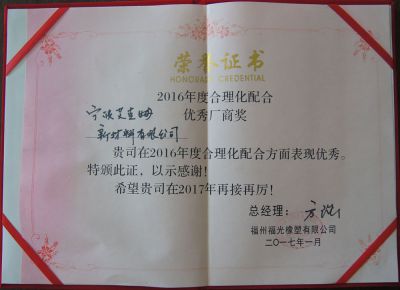 荣誉证书
HONORABLE CREDENTIAL
2016年度合理化配合
优秀厂商奖
宁波艾克姆
新材料有限公司
贵司在2016年度合理化配合方面表现优秀。
特颁此证，以示感谢！
希望贵司在2017年再接再厉！
总经理：
福州福光橡塑有限公司
二〇一七年一月